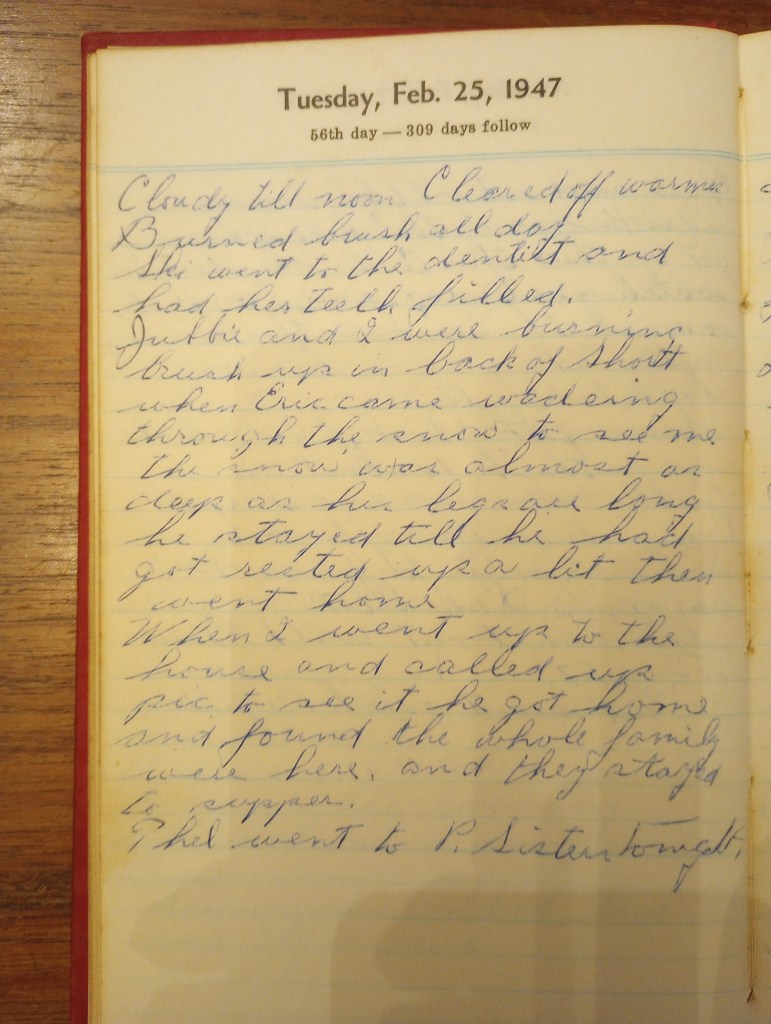 Tuesday, Feb. 25, 1947
56th day — 309 days follow
Cloudy till noon Cleared off warmer
Burned brush all day
Ski went to the dentist and
had her teeth filled.
and I were burning
brush up in back of Shortt
when Eric came wadeing
through the snow to see me
the snow was almost as
deep as his legs are long
he stayed till he had
got rested up a bit then
went home
When I went up to the
house and called up
pic to see if he got home
and found the whole family
were here. and they stayed
to supper.
Phel went to P. Sisters tonight.